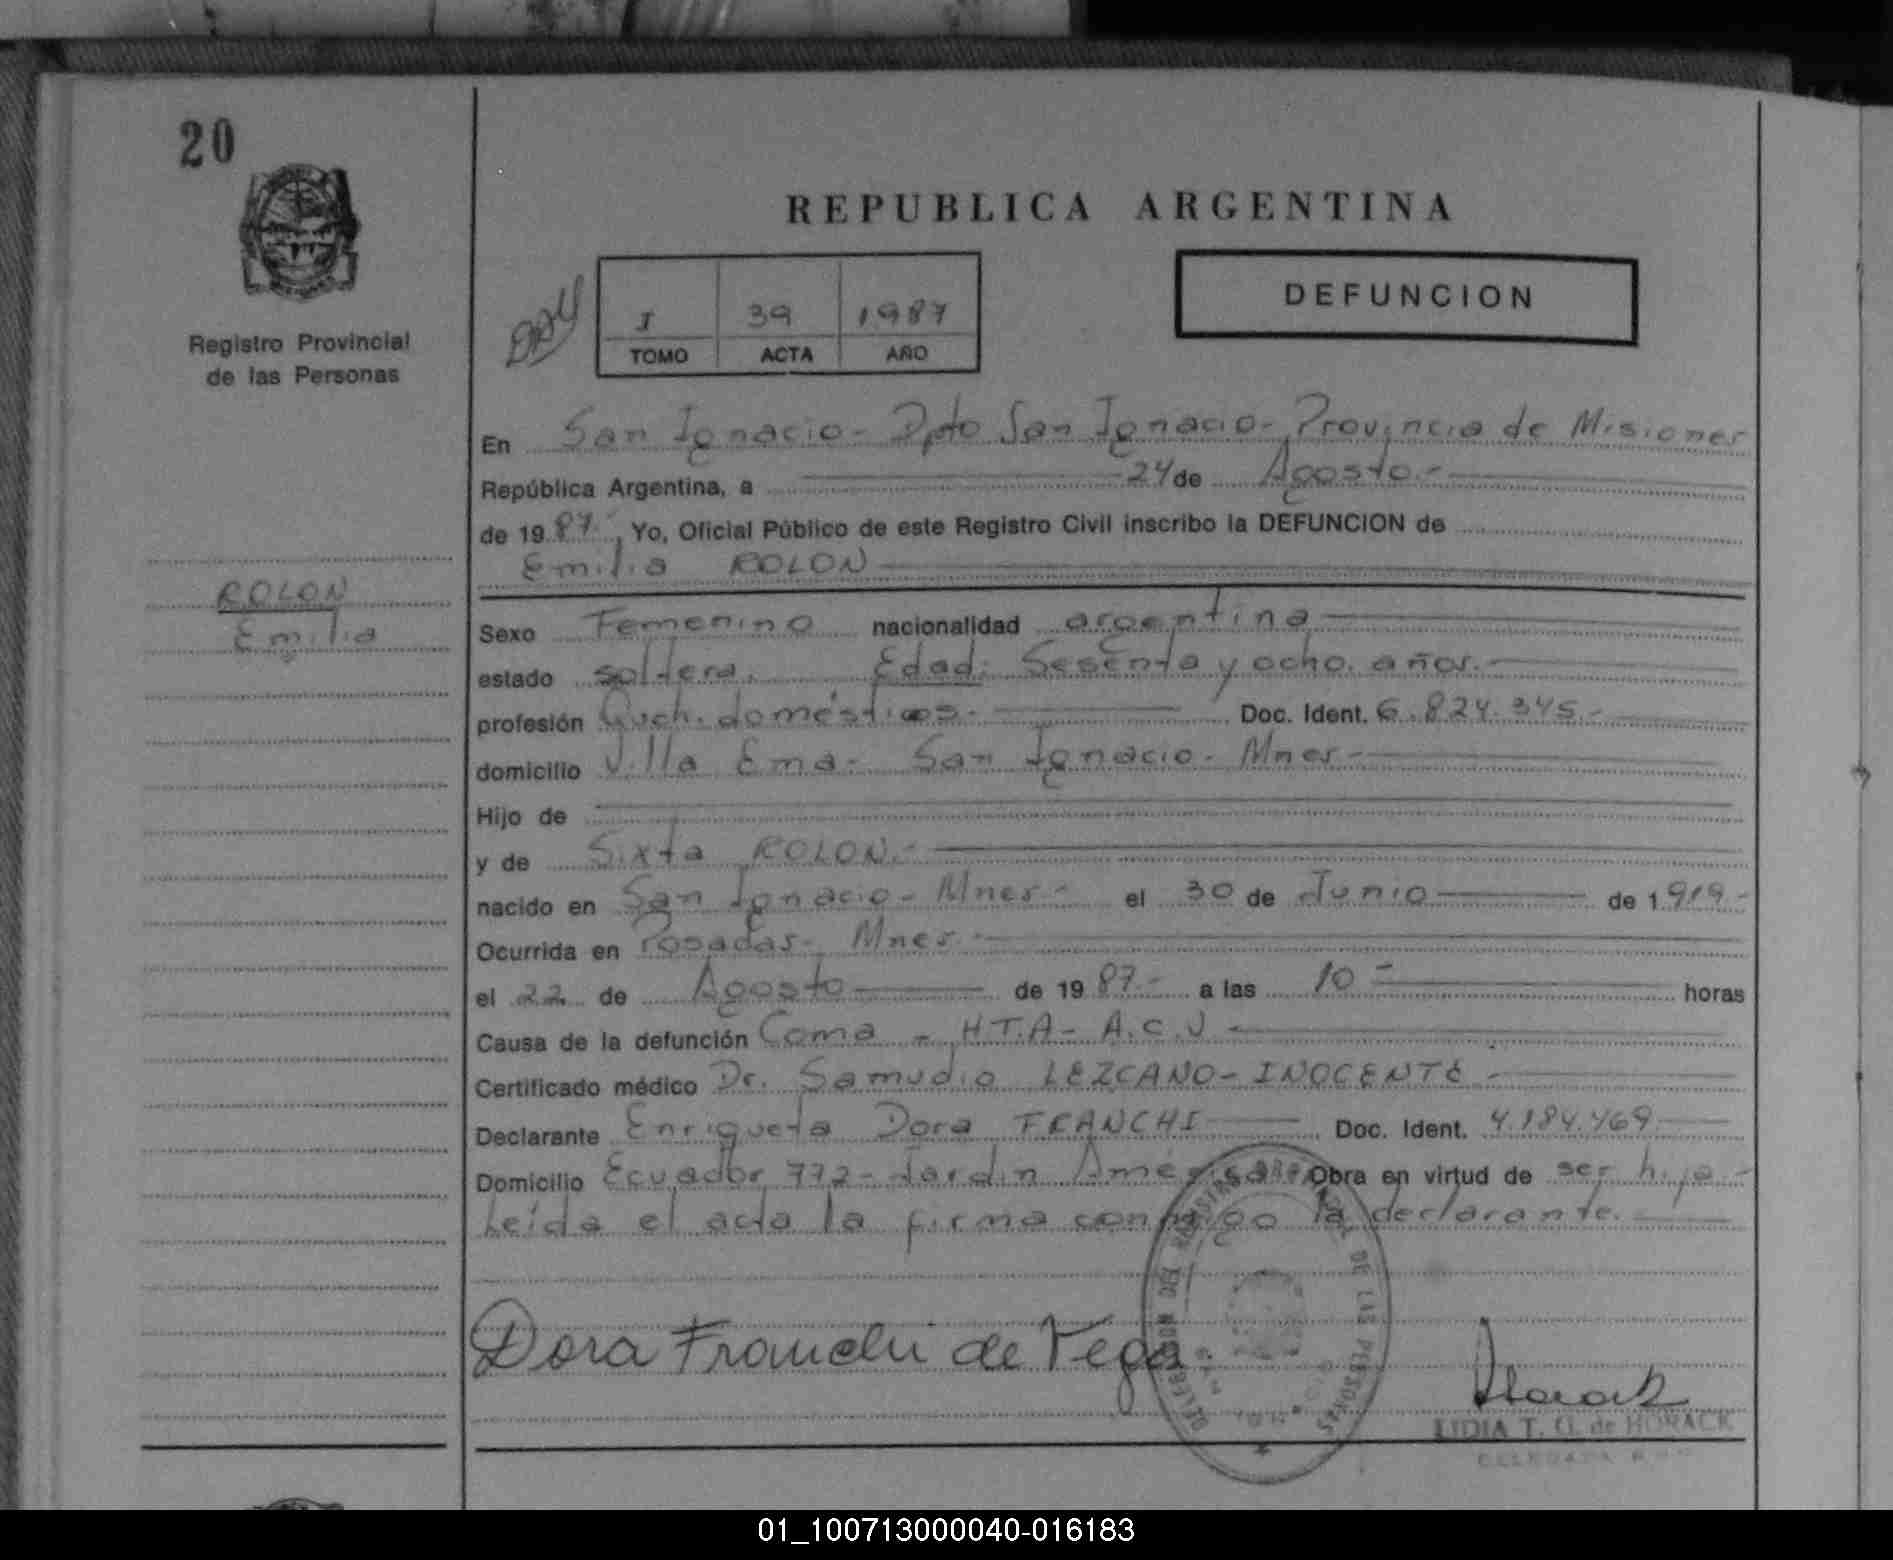 20
REPUBLICA ARGENTINA
Registro Provincial
de las Personas
I 39 1987
TOMO ACTA AÑO
DEFUNCION
En San Ignacio - Dpto San Ignacio - Provincia de Misiones
República Argentina, a 24 de Agosto.-
de 1987.- , Yo, Oficial Público de este Registro Civil inscribo la DEFUNCION de
Emilia ROLON
ROLON
Emilia
Sexo Femenino nacionalidad argentina
estado soltera. Edad: Sesenta y ocho. años.-
profesión Queh. domésticos.- Doc. Ident. 6.824.345.-
domicilio Villa Ema - San Ignacio - Mnes -
Hijo de
y de Sixta ROLON.-
nacido en San Ignacio - Mnes - el 30 de Junio de 1.919.-
Ocurrida en Posadas - Mnes.-
el 22 de Agosto de 1987.- a las 10 - horas
Causa de la defunción Coma - H.T.A - A.C.V -
Certificado médico Dr. Samudio LEZCANO - INOCENTE -
Declarante Enriqueta Dora FRANCHI Doc. Ident. 4.184.469
Domicilio Ecuador 772 - Jardín América Obra en virtud de ser hija -
Leída el acta la firma conmigo la declarante.
Dora Franchi de Vega
DELEGACION DEL REGISTRO PROVINCIAL DE LAS PERSONAS
Horack
LIDIA T. G. de HORACK
01_100713000040-016183